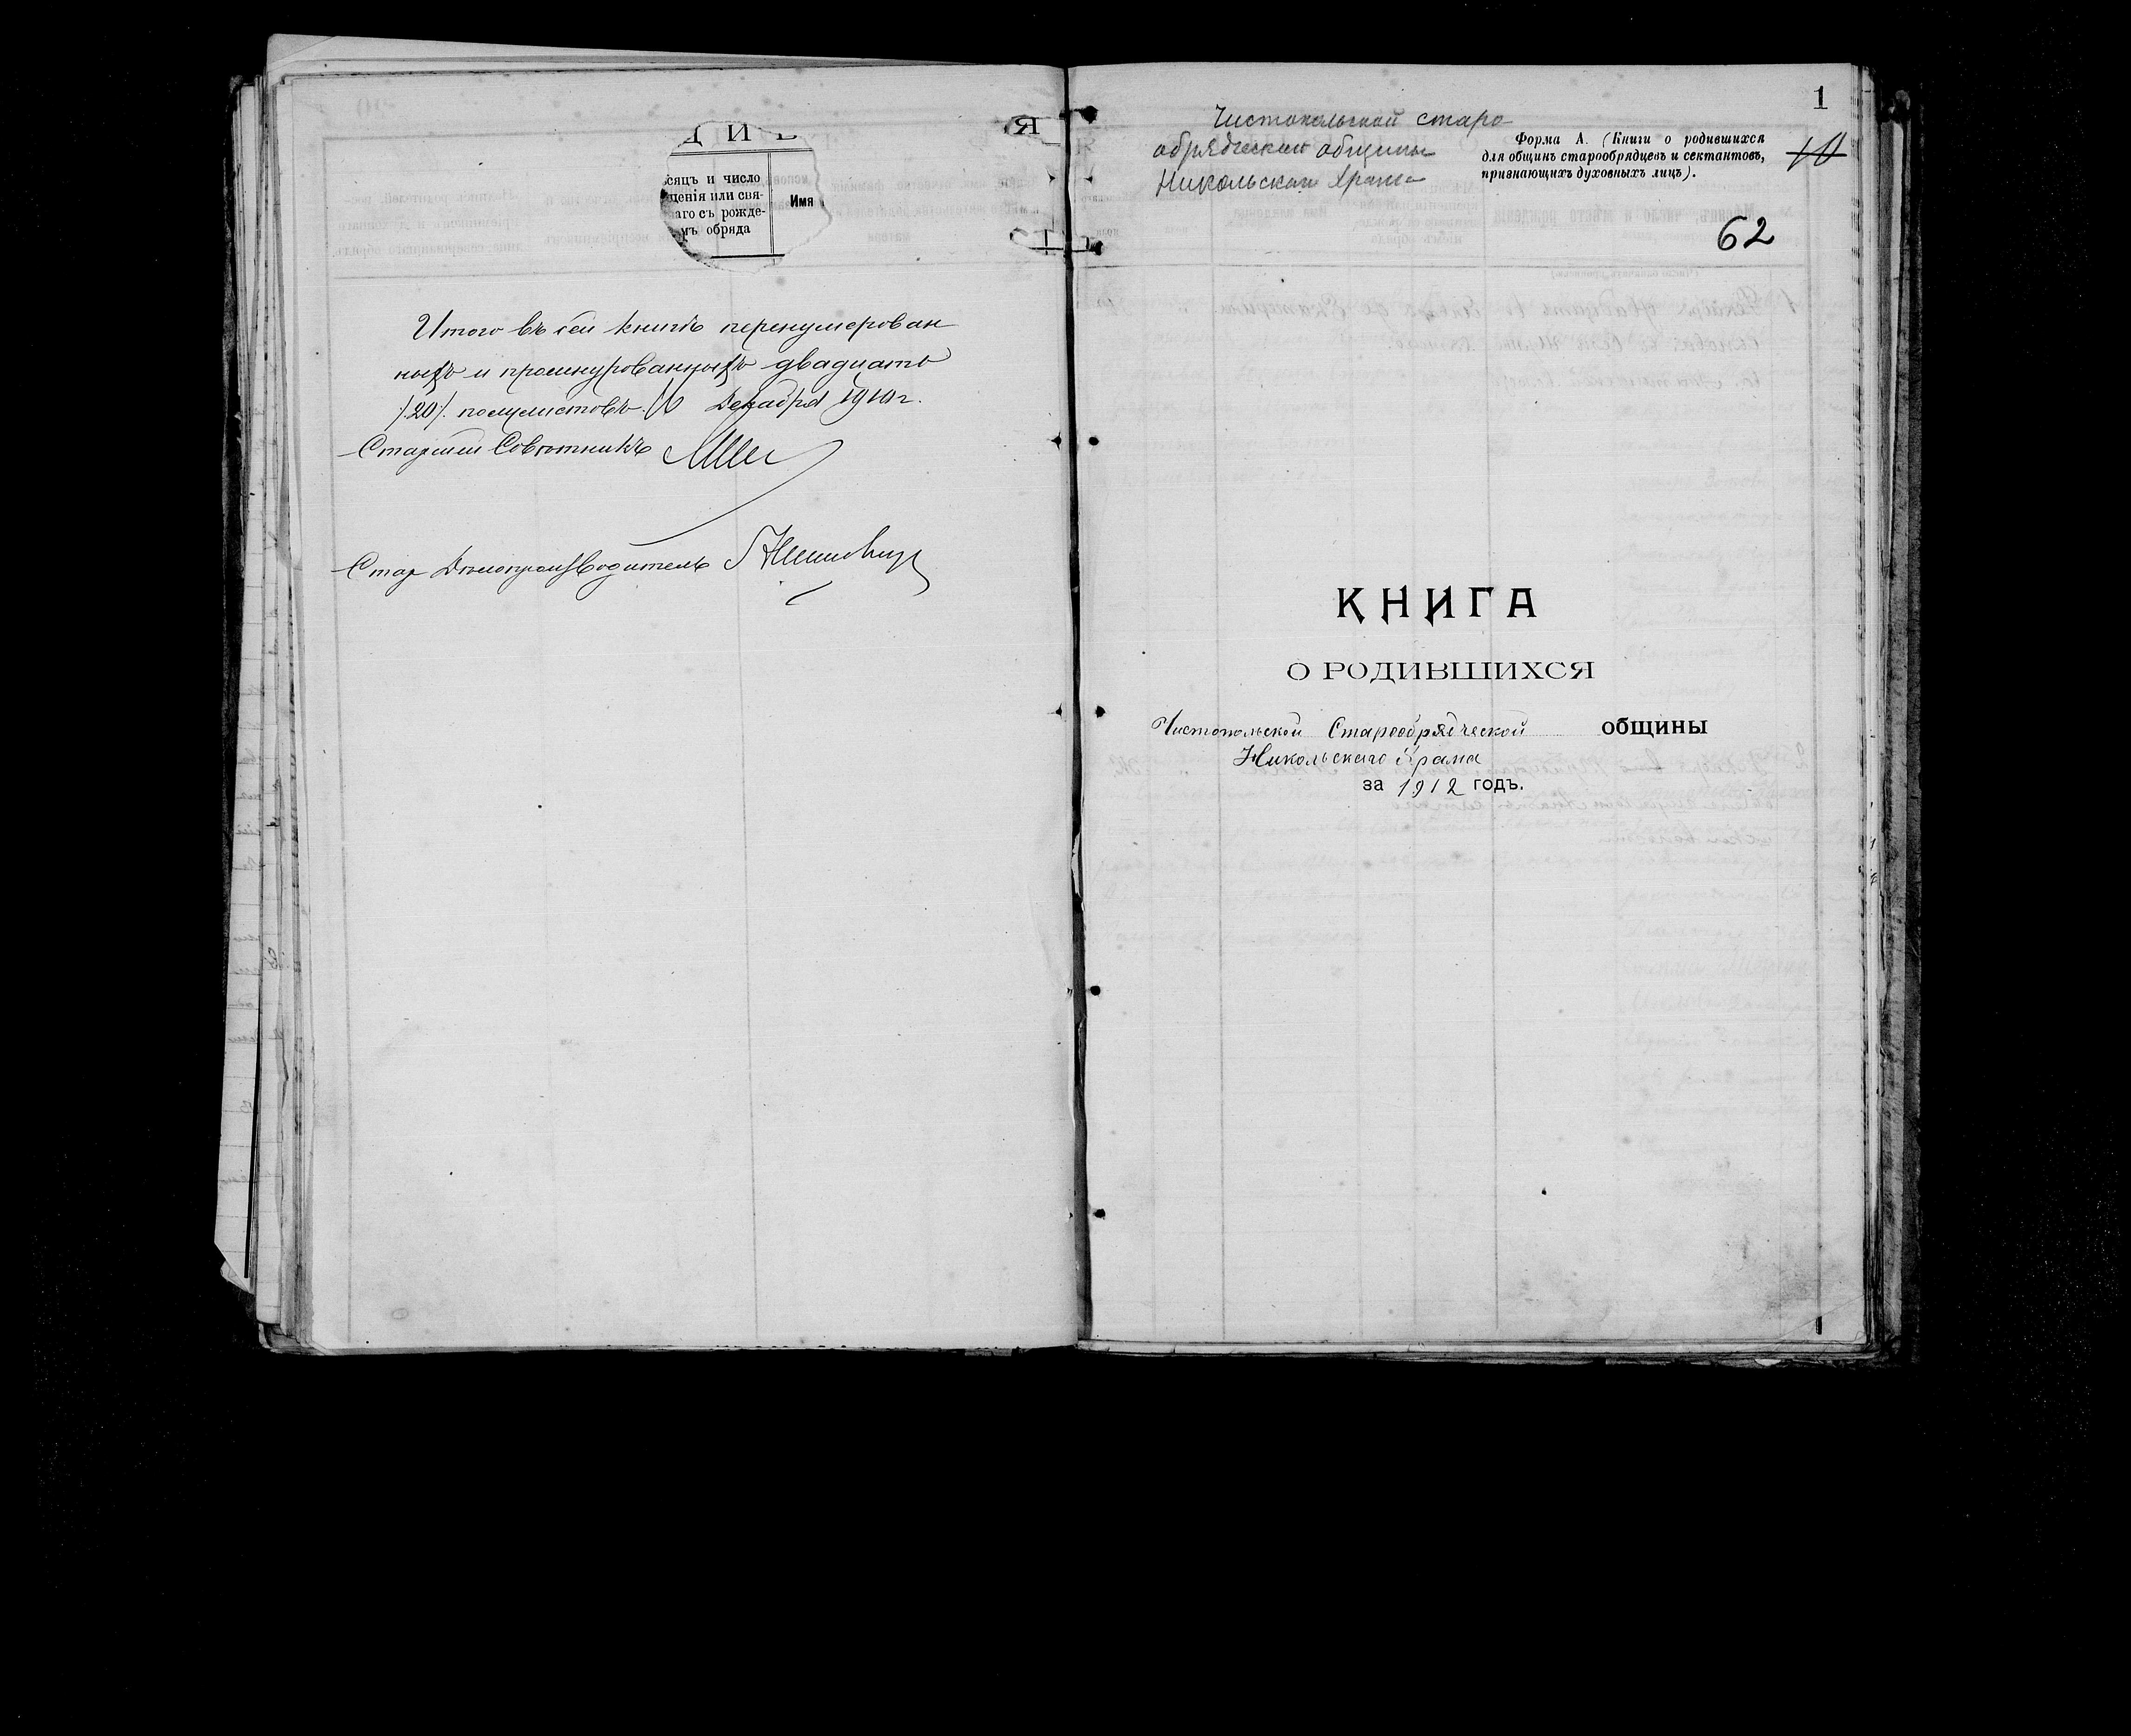 Д И В
Я
ѣсяцъ и число
щенія или свя-
наго съ рожде-
мъ обряда
Имя
Итого въ сей книгѣ перенумерован
ныхъ и прошнурованныхъ двадцать
/20/. полулистовъ. Декабря 1910 г.
Старшій Совѣтникъ
Стар Дѣлопроизводитель
1
Чистопольской старо
обрядческой общины
Никольскаго Храма
Форма А. (Книги о родившихся
для общинъ старообрядцевъ и сектантовъ,
признающихъ духовныхъ лицъ).
10
62
КНИГА
О РОДИВШИХСЯ
Чистопольской Старообрядческой общины
Никольскаго Храма
за 1912 годъ.